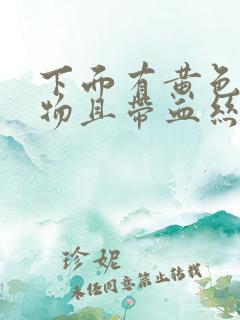 下而有黄色
物且带血丝
珍妮
未经同意禁止转载